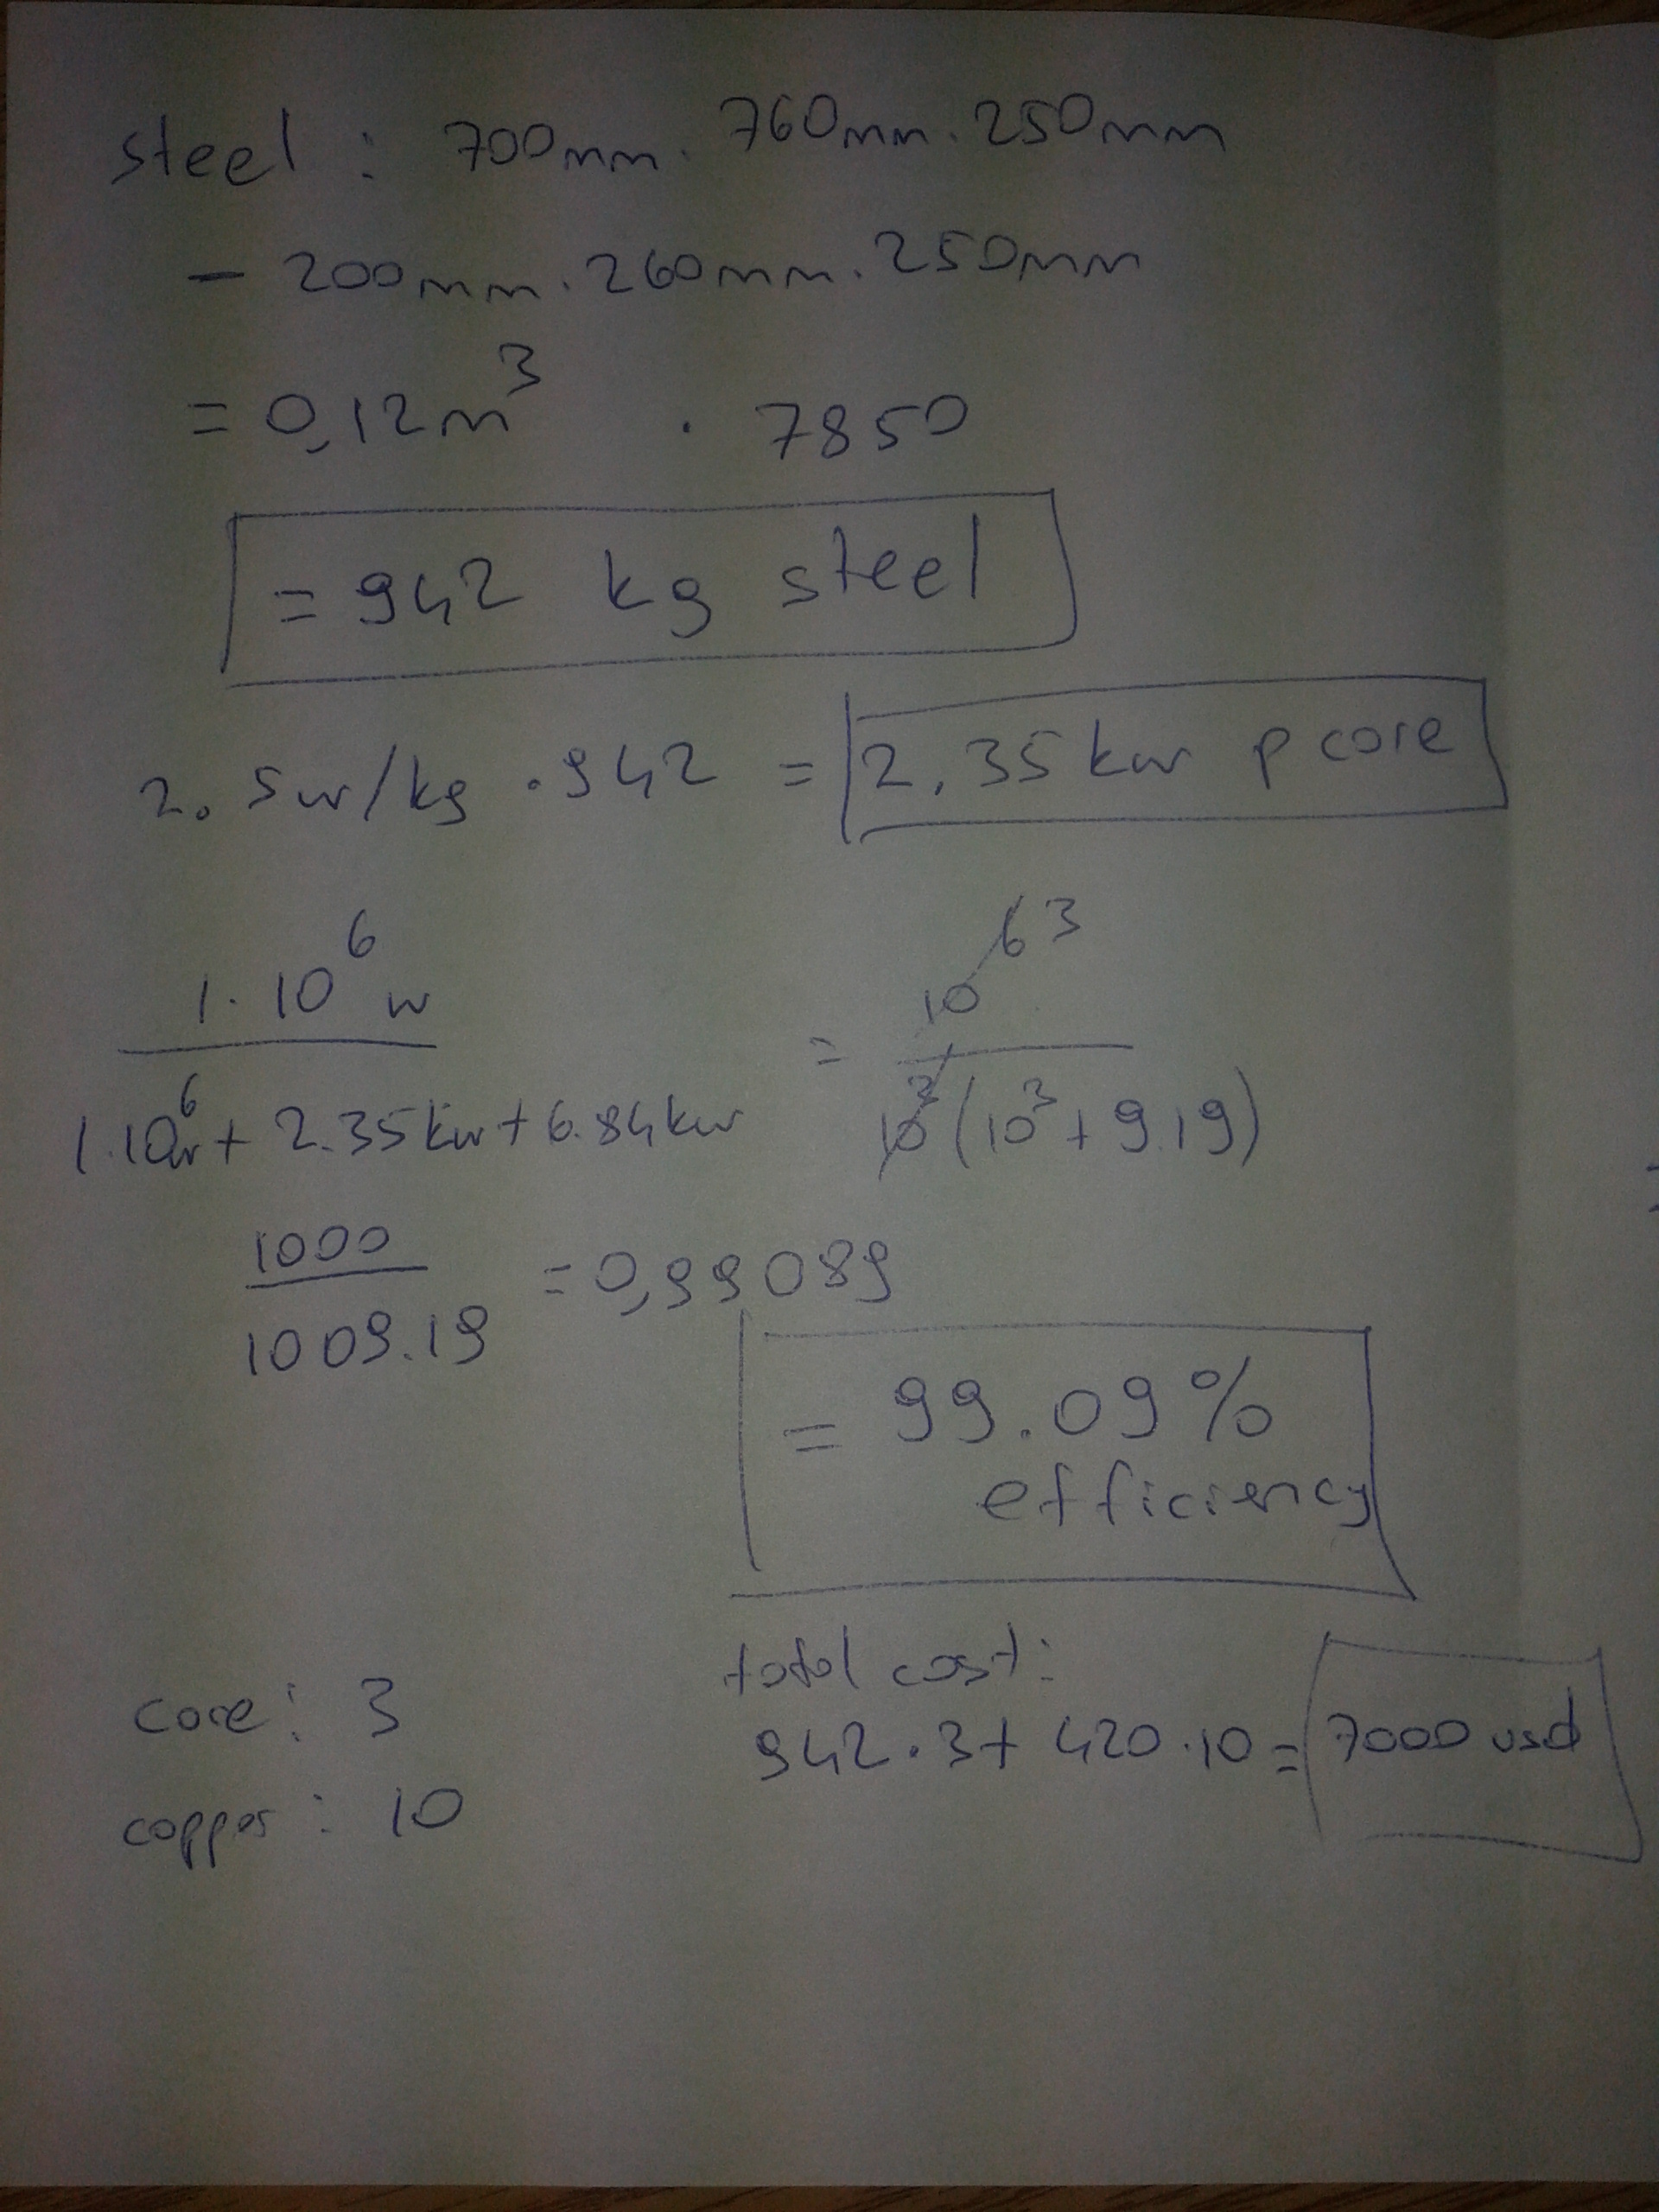 steel : 700mm . 760mm . 250mm
- 200mm . 260mm . 250mm
= 0,12m³ . 7850
= 942 kg steel
2.5w/kg . 942 = 2.35kw p core
1.10⁶ w / 1.10⁶w + 2.35kw + 6.84kw = 10⁶ ³ / 10³ (10³ + 9.19)
1000 / 1009.19 = 0,99089
= 99.09%
efficiency
total cost:
core: 3
942.3 + 420.10 = 7000 usd
copper : 10